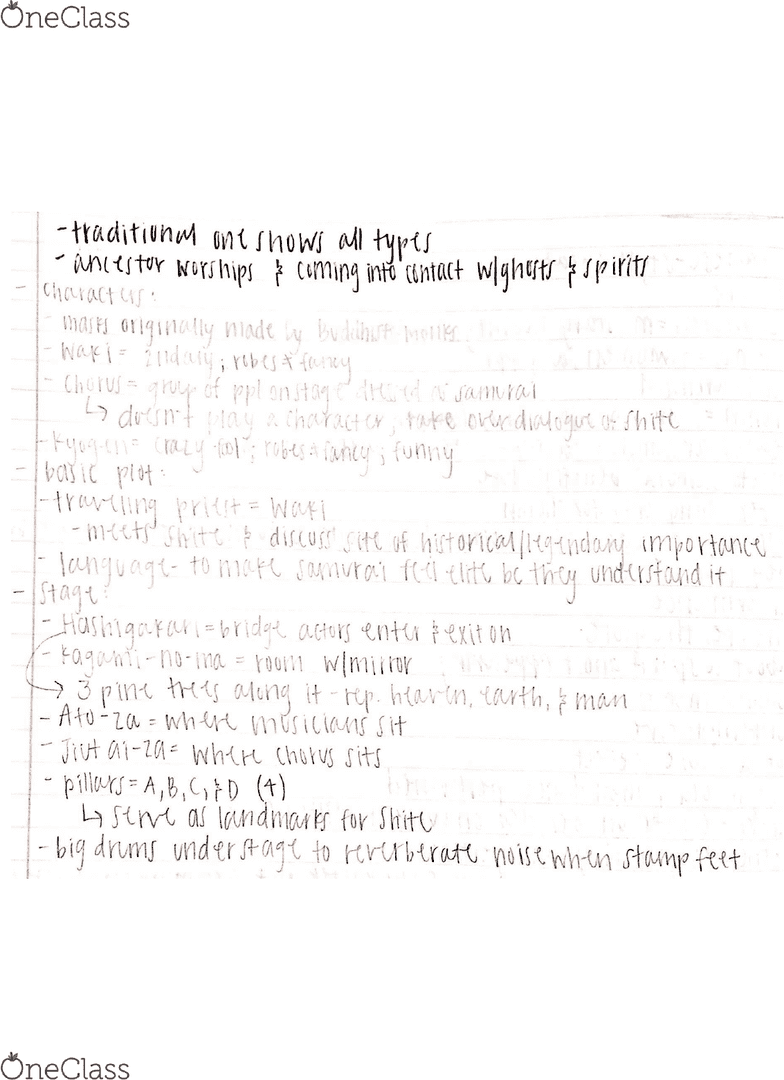 OneClass
-traditional one shows all types
- ancestor worships & coming into contact w/ghosts & spirits
- characters:
- masks originally made by Buddhist monks
- Waki = 2ndary; robes & fancy
- chorus = group of ppl on stage dressed as samurai
↳ doesn't play a character, take over dialogue of shite
-kyogen = crazy fool; robes & fancy; funny
- basic plot:
-traveling priest = Waki
-meets shite & discuss site of historical/legendary importance
- language- to make samurai feel elite bc they understand it
- stage:
- Hashigakari=bridge actors enter & exit on
- kagami-no-ma = room w/mirror
→ 3 pine trees along it - rep. heaven, earth, & man
- Ato-za = where musicians sit
- Jiutai-za= where chorus sits
- pillars = A, B, C, & D (4)
↳ serve as landmarks for shite
-big drums under stage to reverberate noise when stamp feet
OneClass